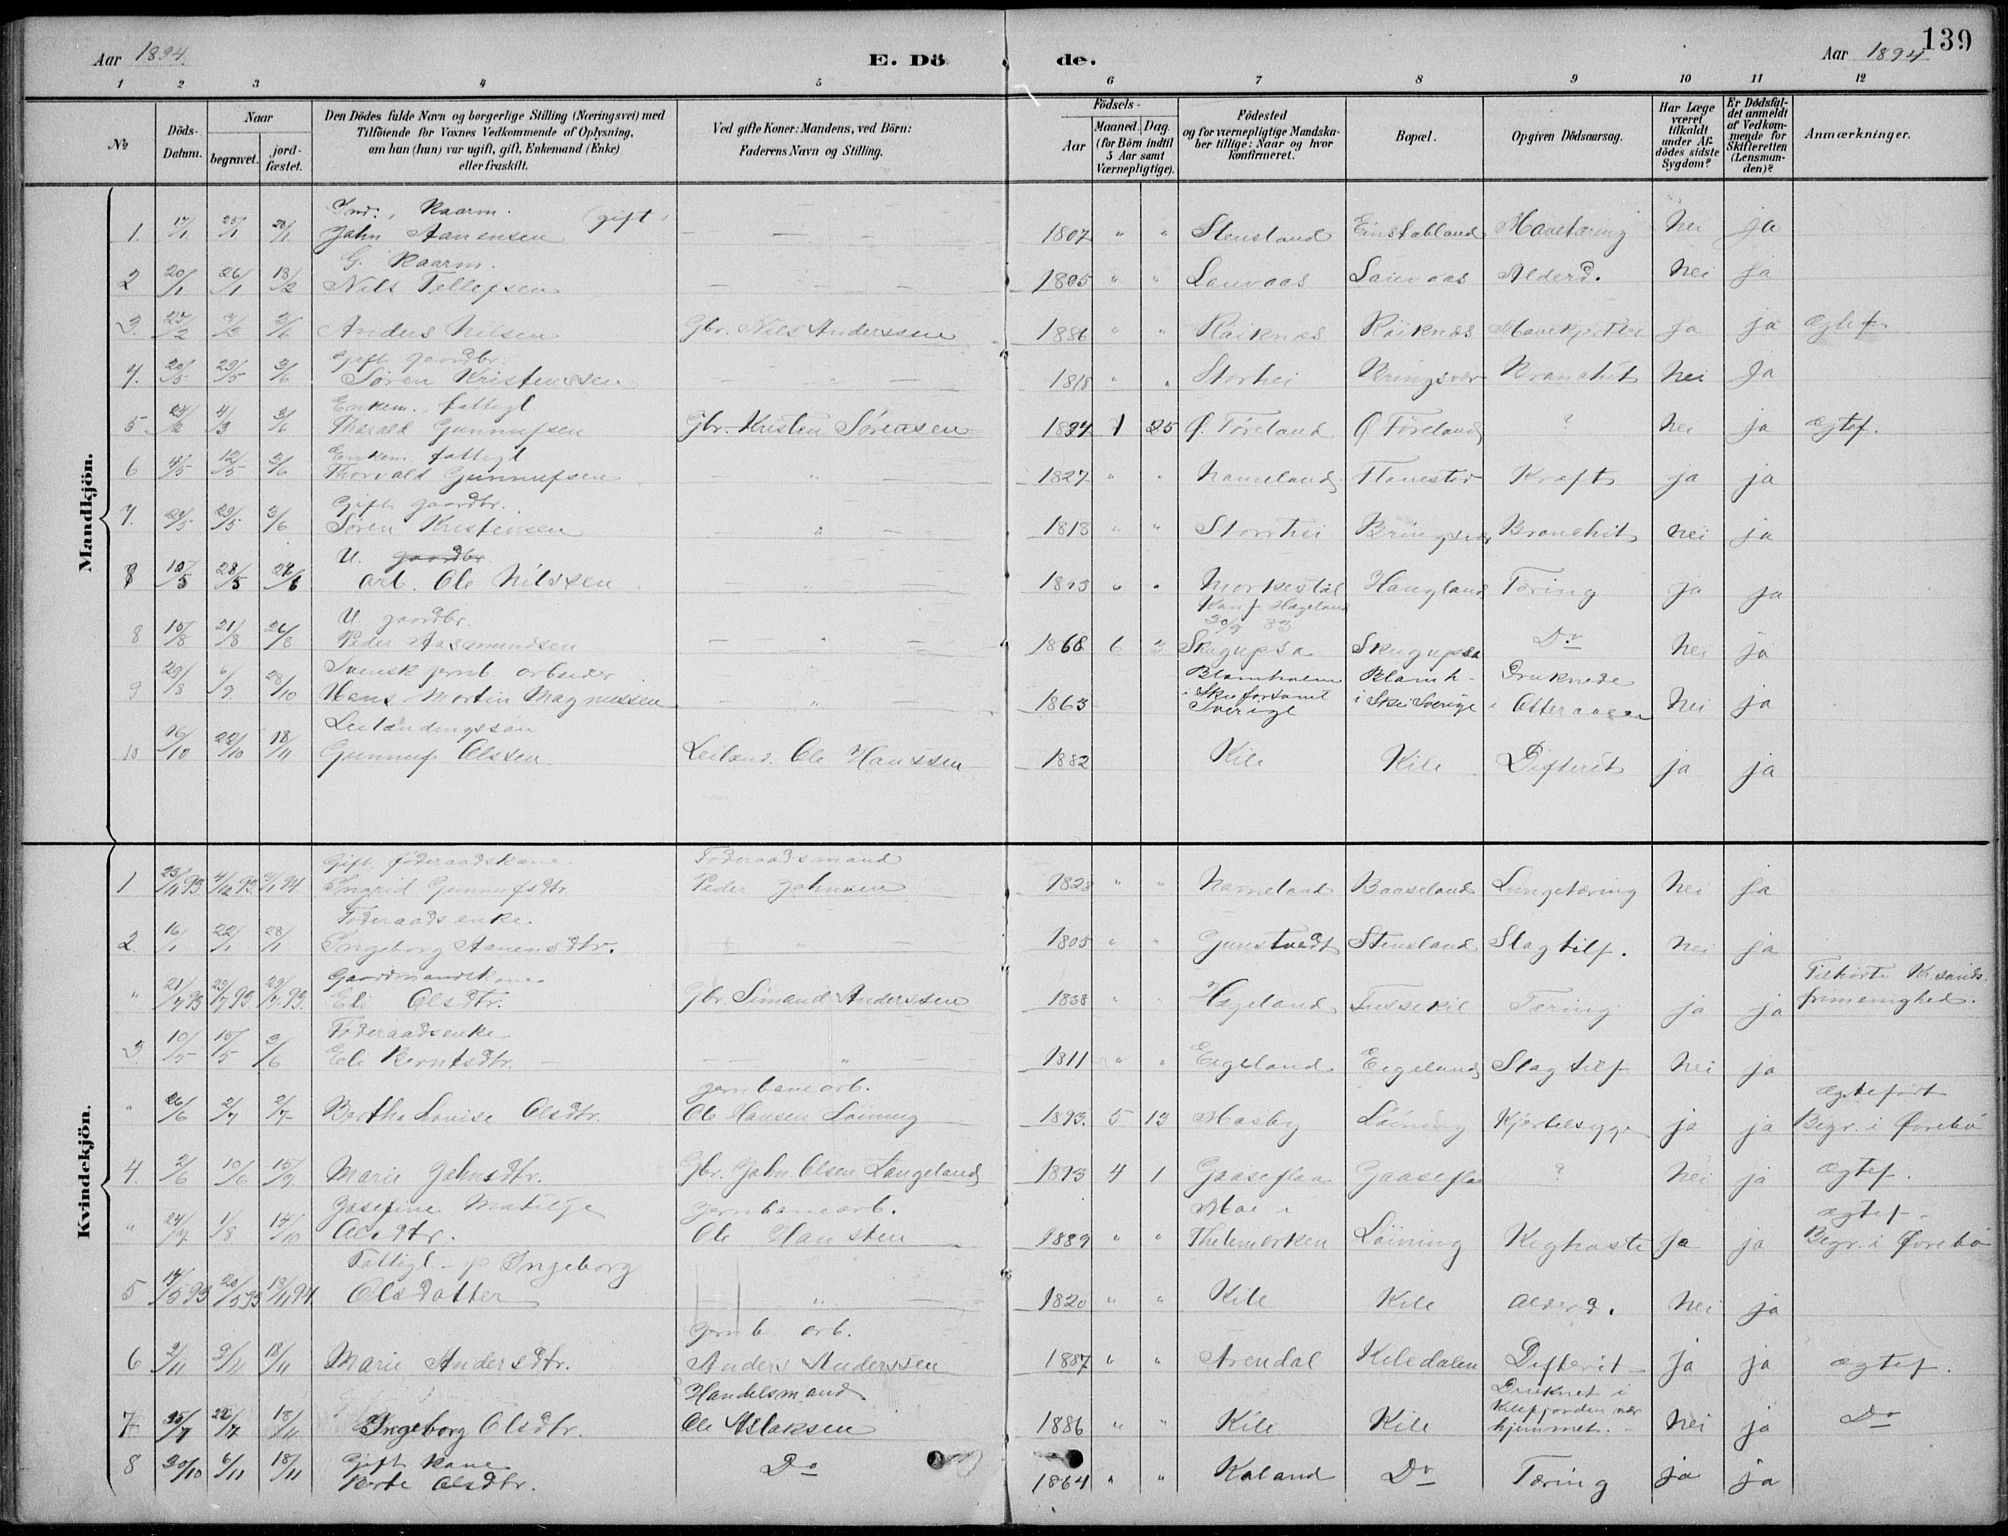 Aar 1894. E. Dö de. Aar 1894 139
1 2 3 4 5 6 7 8 9 10 11 12
No Döds-Datum. Naar begravet. jord-fæstet. Den Dödes fulde Navn og borgerlige Stilling (Næringsvei) med Tilföiende for Voxnes Vedkommende af Oplysning, om han (hun) var ugift, gift, Enkemand (Enke) eller fraskilt. Ved gifte Koner: Mandens, ved Börn: Faderens Navn og Stilling. Födsels- Aar Maaned. Dag. (for Börn indtil 5 Aar samt Værnepligtige). Födested og for værnepligtige Mandskaber tillige: Naar og hvor konfirmeret. Bopæl. Opgiven Dödsaarsag. Har Læge været tilkaldt under Afdödes sidste Sygdom? Er Dödsfaldet anmeldt af Vedkommende for Skifteretten (Lensmanden)? Anmærkninger.
Mandkjön.
Ind., Kaarm. (gift)
1. 17/1 25/1 28/1 John Aanensen 1807 " " Stensland Einstabland Mavetæring Nei ja
G. Kaarm.
2 20/1 26/1 18/2 Nils Tellefsen 1805 " " Lauvaas Lauvaas Alderd. Nei ja
3. Anders Nilsen Gbr. Nils Anderssen 1886 " " Røiknæs Røiknæs Ja ja ægtef.
Gift gaardbr.
4. 20/5 29/5 3/6 Søren Kristenssen 1818 " " Storhei Kringsvær Bronchit Nei Ja
Enkem., fattigl.
5 24/2 4/3 3/6 Tharald Gunnufsen Gbr. Kristen Sörensen 1894 1 25 Ø. Föreland Ø. Föreland ? Nei ja ægtef.
Enkem. fattigl
6 4/5 12/5 3/6 Thorvald Gunnufsen 1827 " " Homeland Kræft ja ja
Gift gaardbr.
7. 24/5 29/5 3/6 Søren Kristensen 1818 " " Storrhei Bringsvær Bronchit Nei ja
U. gaardbr
8 10/5 28/5 24/6 arb. Ole Nilssen " " Haugland Tæring ja ja
Konf. Hægeland
U. gaardbr. 30/9 83
8 15/8 21/8 26/8 Peder Aasmundsen 1868 6 3 Skugupsa Skugupsa Do Nei ja
Svensk jernb. arbeider Blomholm Blomh- Druknede
9 29/8 6/9 28/10 Hans Martin Magnussen 1863 i Ske forsamt Sverige i Ske Sverige i Otteraaen Nei ja
Leilændingssøn
10 16/10 22/10 18/11 Gunnuf Olssen Leilænd. Ole Hanssen 1882 Kile Kile Difterit ja ja
Kvindekjön.
Gift föderaadskone Föderaadsmand
1 25/11 93 4/12 93 94. Ingrid Gunnufsdtr. Peder Johnsen 1828 " " Homeland Baaseland Lungetæring Nei ja
Föderaadsenke.
2. 16/1 22/1 28/1 Ingeborg Aanensdtr. 1805 " " Gunstvedt Stensland Slagtilf. Nei ja
Gaardmandskone Tilhørte Kr.sands
" 21/7 93 29/7 93 29/7 93. Eli Olsdtr. Gbr Simund Anderssen 1838 " " Hægeland Fussekil Tæring ja ja frimenighed.
Föderaadsenke
3 10/5 15/5 3/6 Eli Berntsdtr. 1811 " " Eigeland Eigeland Slagtilf Nei ja
jernbanearb. ægtefødt
" 26/6 2/7 2/7 Bertha Lovise Olsdtr. Ole Hansen Löining 1893. 5 13 Mosby Löining Kjertelsyge ja ja Begr. i Övrebö
4. 2/6 10/6 Marie Johnsdtr. Gbr. John Olsen Langeland 1893 4 1 Gaaseflaa Gaaseflaa ? Nei ja ægtef.
Josefine Matilje jernbanearb. Moe i ægtef.
" 24/7 1/8 14/10 Olsdtr. Ole Hansten 1889 " " Thelemarken Löining Kighoste ja ja Begr. i Övrebö
Fattigl. p Ingeborg
5 14/5 93 20/5 93 18/11 94. Olsdatter 1820 " " Kile Kile Alderd. Nei ja
jernb arb.
6 2/11 9/11 18/11 Marie Andersdtr. Anders Anderssen 1887 " " Arendal Kiledalen Difterit ja ja ægtef.
Handelsmand Druknet i
7 25/7 18/11 Ingeborg Olsdtr. Ole Aslaksen 1886 " " Kile Kile Kilefjorden nær hjemmet. Nei ja Do
8 30/10 6/11 18/11 Gift Kone Berte Olsdtr. Do 1864 " " Kaland Do Tæring ja ja